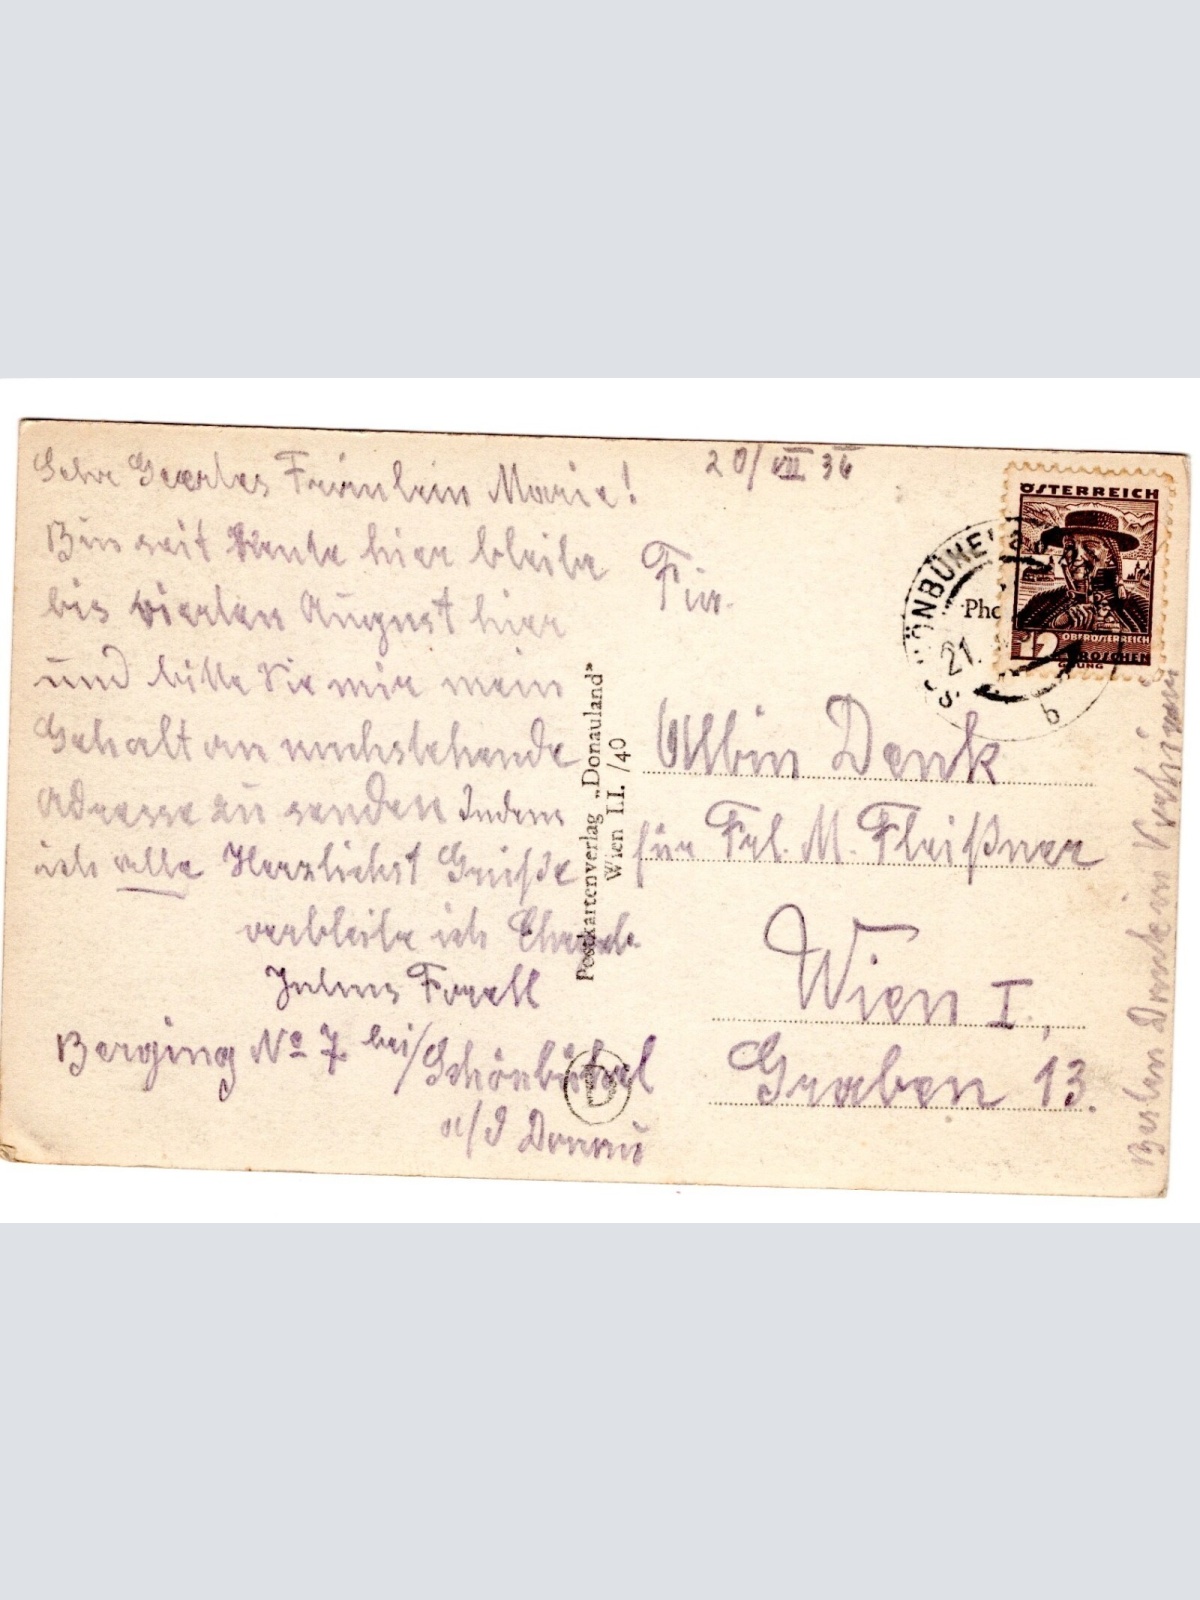 20/VII 36
Sehr Geertes Fräulein Marie!
Bin seit heute hier bleibe
bis vierten August hier
und bitte Sie mir mein
Gehalt an nachstehende
Adresse zu senden Indem
ich alle Herzlichst Grüße
verbleibe ich
Julius
Berging No 7 bei/Schönbühel
a/d Donau
Postkartenverlag „Donauland"
Wien I.I. /40
D
Für
Albin Denk
für Frl. M. Fleißner
Wien I,
Graben 13.
Besten Dank im
Pho
ÖSTERREICH
12 GROSCHEN
OBERÖSTERREICH
SCHÖNBÜHEL a. d.
21.
b